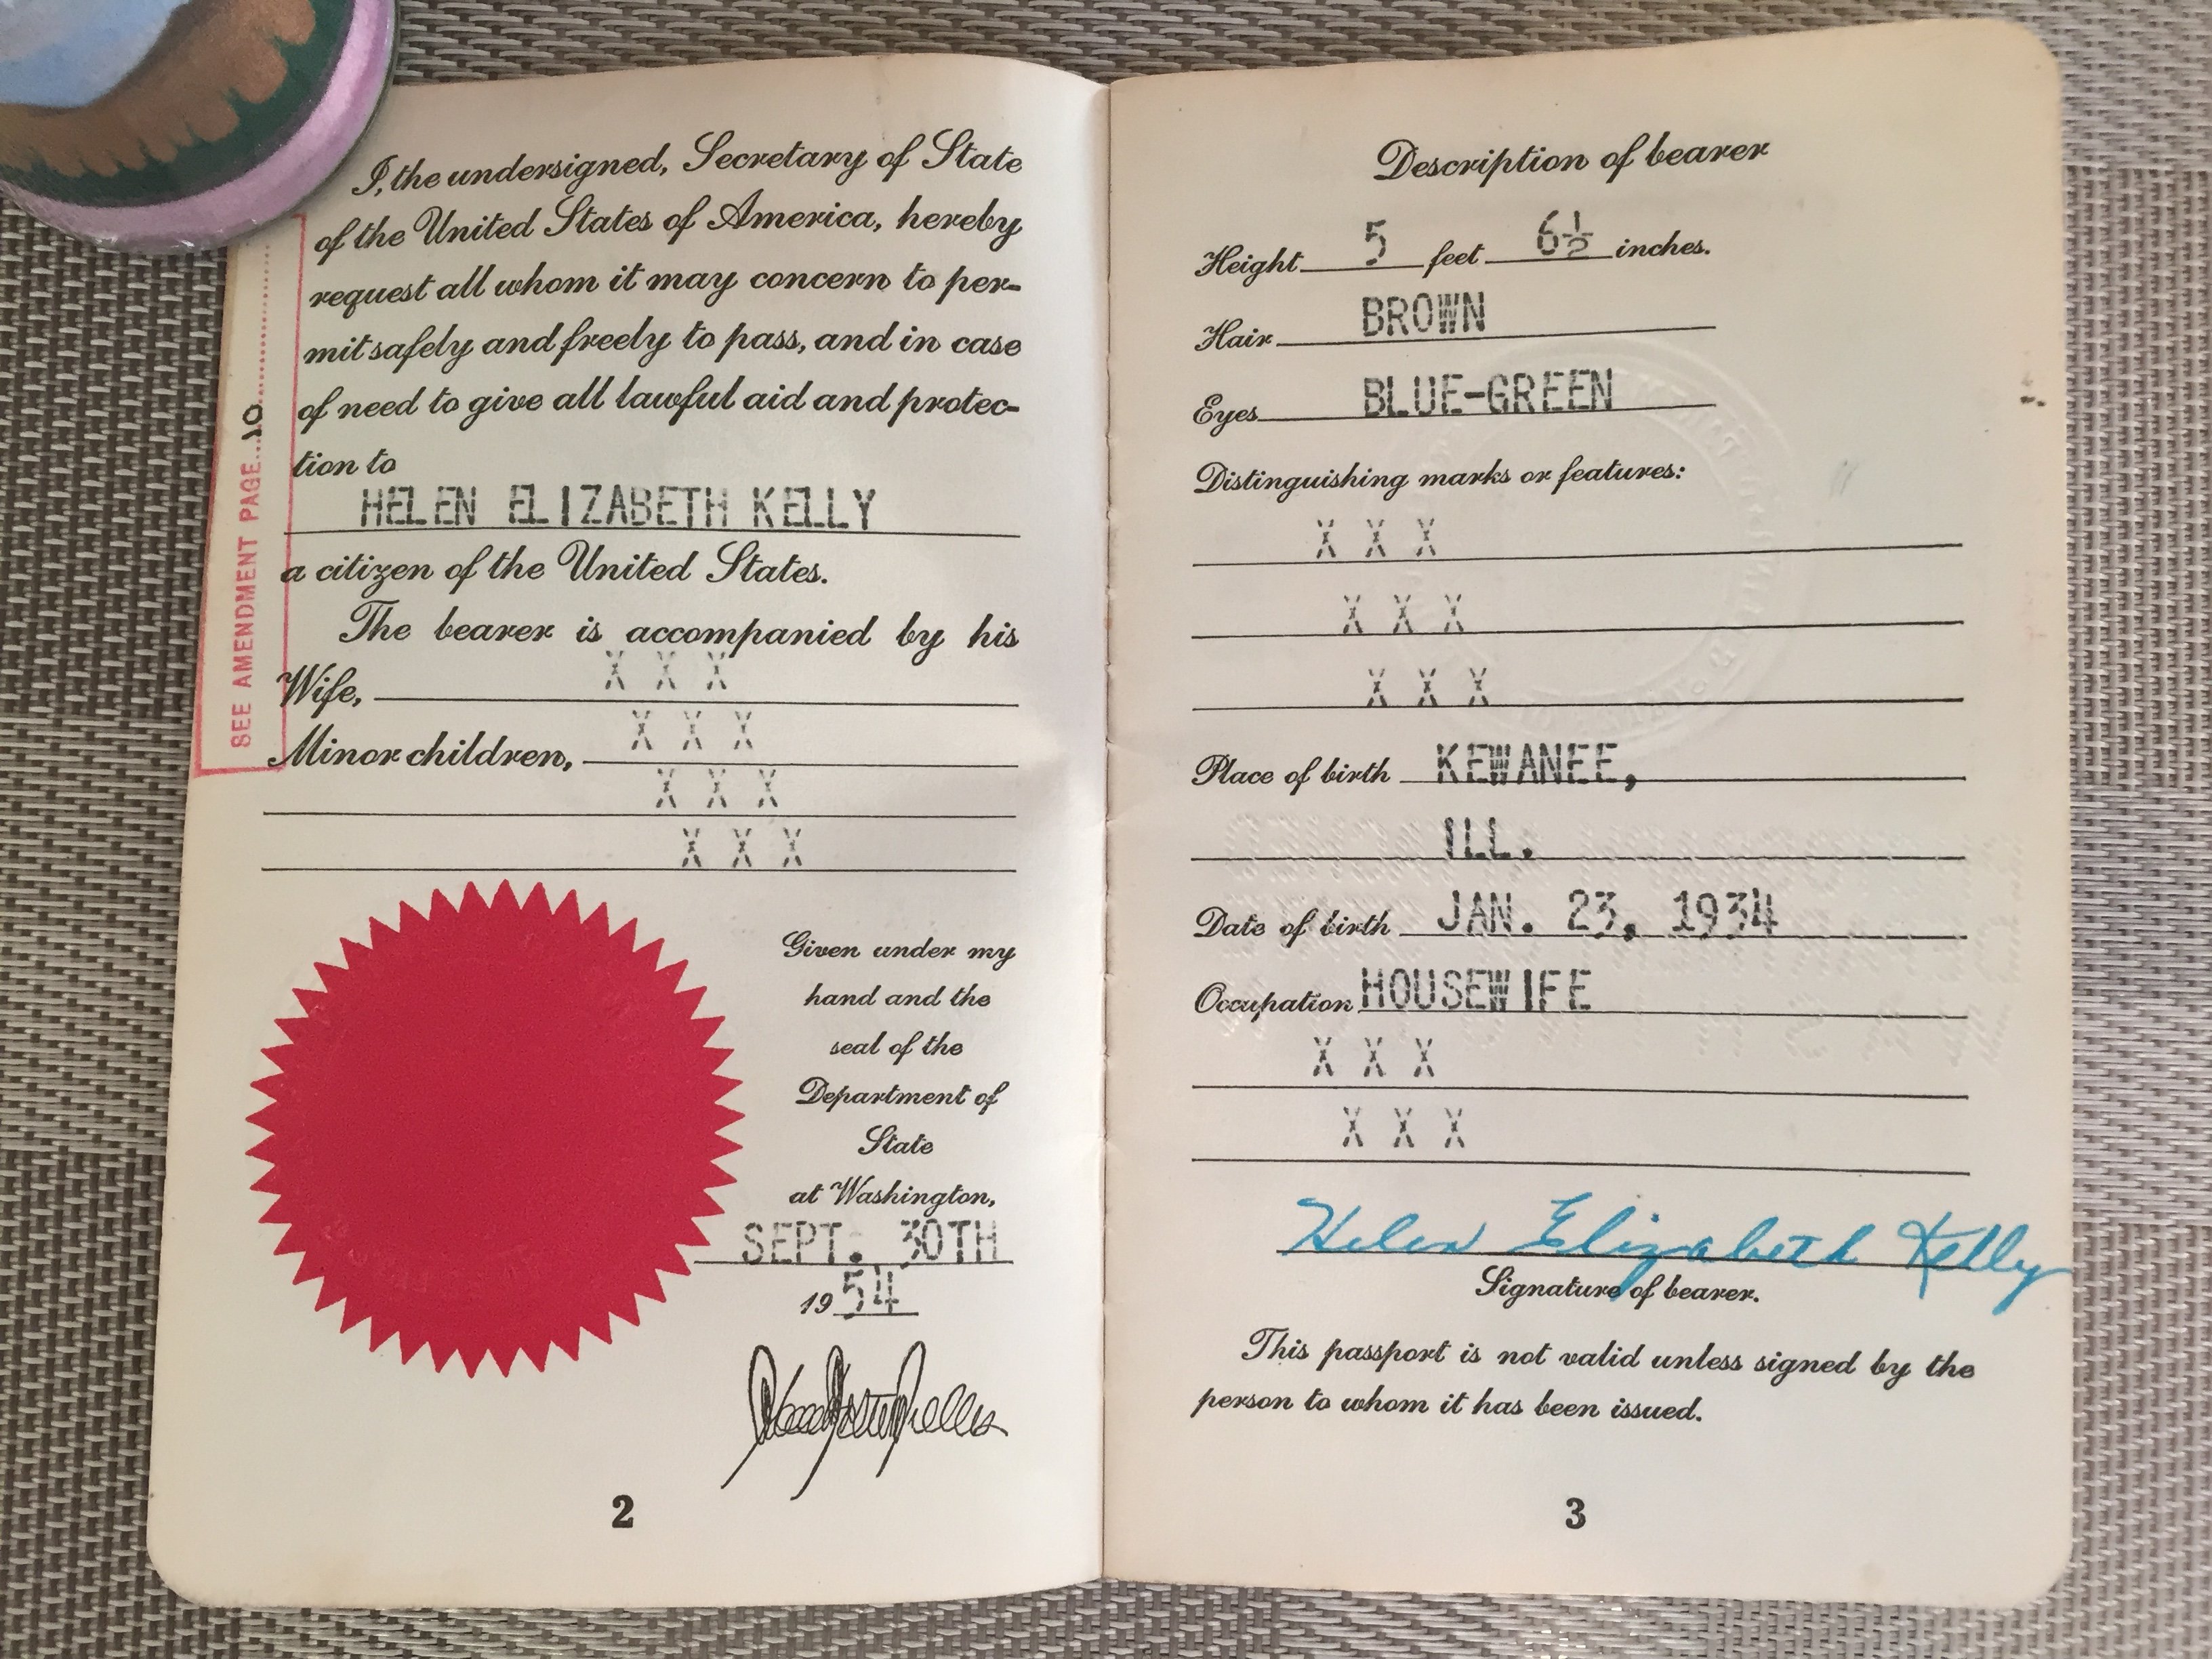 I, the undersigned, Secretary of State
of the United States of America, hereby
request all whom it may concern to per-
mit safely and freely to pass, and in case
of need to give all lawful aid and protec-
tion to
HELEN ELIZABETH KELLY
a citizen of the United States.
The bearer is accompanied by his
Wife, X X X
Minor children, X X X
X X X
X X X
Given under my
hand and the
seal of the
Department of
State
at Washington,
SEPT. 30TH
1954
2
SEE AMENDMENT PAGE...10
Description of bearer
Height 5 feet 6½ inches.
Hair BROWN
Eyes BLUE-GREEN
Distinguishing marks or features:
X X X
X X X
X X X
Place of birth KEWANEE,
ILL.
Date of birth JAN. 23, 1934
Occupation HOUSEWIFE
X X X
X X X
Helen Elizabeth Kelly
Signature of bearer.
This passport is not valid unless signed by the
person to whom it has been issued.
3